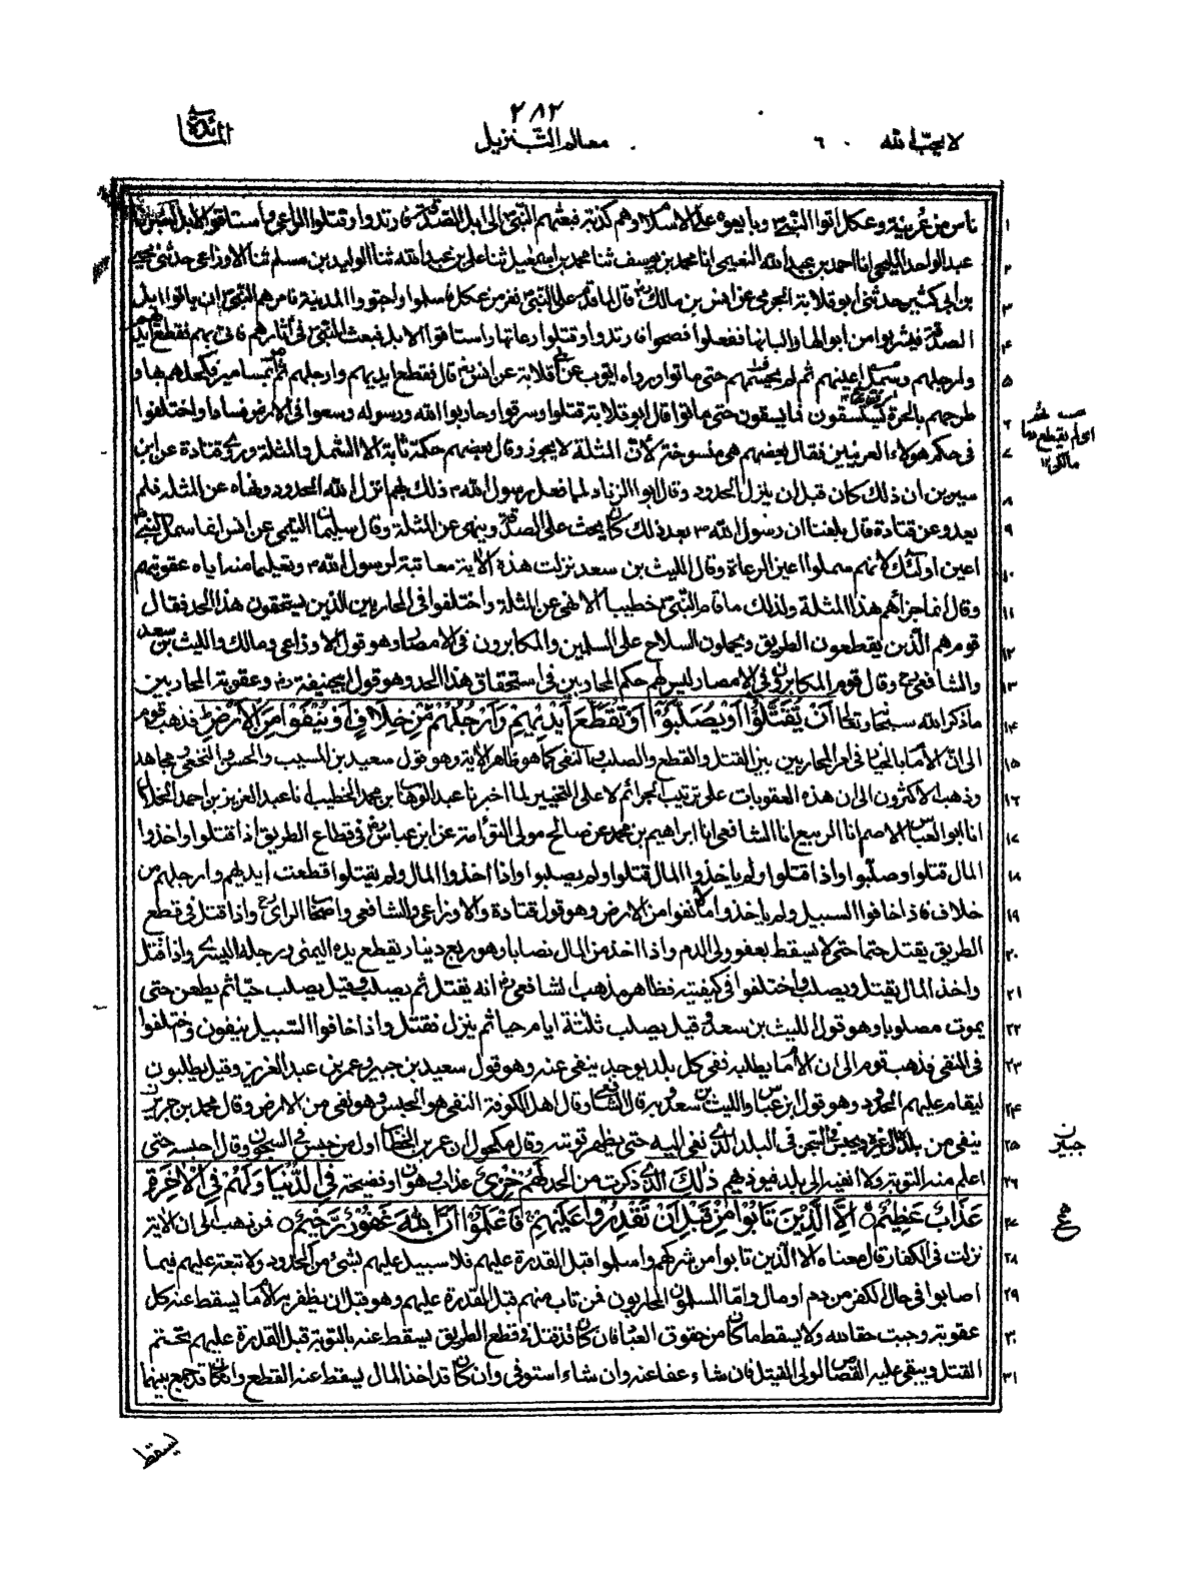 ٢٨٢
لا يحب الله ٦ معالم التنزيل المائدة
ناس من عرينة وعكل اتوا النبي ص وبايعوه على الاسلام وهم كذبة فبعثهم النبي الى ابل الصدقة فارتدوا وقتلوا الراعي واستاقوا الابل
عبد الواحد المليحي انا احمد بن عبد الله النعيمي انا محمد بن يوسف ثنا محمد بن اسمعيل ثنا علي بن عبد الله ثنا الوليد بن مسلم ثنا الاوزاعي حدثني يحيى
بن ابي كثير حدثني ابو قلابة الجرمي عن انس بن مالك رض قال قدم على النبي ص نفر من عكل فاسلموا واجتووا المدينة فامرهم النبي ص ان ياتوا ابل
الصدقة فيشربوا من ابوالها والبانها ففعلوا فصحوا فارتدوا وقتلوا رعاتها واستاقوا الابل فبعث النبي ص في اثارهم فاتي بهم فقطع ايديهم
وارجلهم وسمل اعينهم ثم لم يحسمهم حتى ماتوا ورواه ايوب عن ابي قلابة عن انس رض قال فقطع ايديهم وارجلهم ثم امر بمسامير فكحلهم بها و
طرحهم بالحرة يستسقون فما يسقون حتى ماتوا قال ابو قلابة قتلوا وسرقوا وحاربوا الله ورسوله وسعوا في الارض فسادا واختلفوا
في حكم هولاء العرنيين فقال بعضهم هي منسوخة لان المثلة لا يجوز وقال بعضهم حكمه ثابت الا السمل والمثلة وروى قتادة عن ابن
سيرين ان ذلك كان قبل ان ينزل الحدود وقال ابو الزناد لما فعل رسول الله ص ذلك بهم انزل الله الحدود ونهاه عن المثلة فلم
يعد وعن قتادة قال بلغنا ان رسول الله ص بعد ذلك كان يحث على الصدقة وينهى عن المثلة وقال سليمان التيمي عن انس انما سمل النبي ص
اعين اولئك لانهم سملوا اعين الرعاة وقال الليث بن سعد نزلت هذه الاية معاتبة لرسول الله ص وتعليما منه اياه عقوبتهم
وقال انما جزاؤهم هذا المثلة ولذلك ما قام النبي ص خطيبا الا نهى عن المثلة واختلفوا في المحاربين الذين يستحقون هذا الحد فقال
قوم هم الذين يقطعون الطريق ويحملون السلاح على المسلمين والمكابرون في الامصار وهو قول الاوزاعي ومالك والليث بن سعد
والشافعي رح وقال قوم المكابرون في الامصار ليس لهم حكم المحاربين في استحقاق هذا الحد وهو قول ابي حنيفة رض وعقوبة المحاربين
ما ذكر الله سبحانه وتعالى اَنْ يُّقَتَّلُوْٓا اَوْ يُصَلَّبُوْٓا اَوْ تُقَطَّعَ اَيْدِيْهِمْ وَاَرْجُلُهُمْ مِّنْ خِلَافٍ اَوْ يُنْفَوْا مِنَ الْاَرْضِ فذهب قوم
الى ان الامام بالخيار في امر المحاربين بين القتل والقطع والصلب والنفي كما هو ظاهر الاية وهو قول سعيد بن المسيب والحسن والنخعي ومجاهد
وذهب الاكثرون الى ان هذه العقوبات على ترتيب الجرائم لا على التخيير لما اخبرنا عبد الوهاب بن محمد الخطيب انا عبد العزيز بن احمد الخلال
انا ابو العباس الاصم انا الربيع انا الشافعي انا ابراهيم بن محمد عن صالح مولى التوأمة عن ابن عباس رض في قطاع الطريق اذا قتلوا واخذوا
المال قتلوا وصلبوا واذا قتلوا ولم ياخذوا المال قتلوا ولم يصلبوا واذا اخذوا المال ولم يقتلوا قطعت ايديهم وارجلهم من
خلاف فاذا خافوا السبيل ولم ياخذوا مالا نفوا من الارض وهو قول قتادة والاوزاعي والشافعي واصحاب الراي رح واذا قتل في قطع
الطريق يقتل حتما حتى لا يسقط بعفو ولي الدم واذا اخذ من المال نصابا وهو ربع دينار يقطع يده اليمنى ورجله اليسرى واذا قتل
واخذ المال يقتل ويصلب واختلفوا في كيفيته فظاهر مذهب الشافعي رح انه يقتل ثم يصلب وقيل يصلب حيا ثم يطعن حتى
يموت مصلوبا وهو قول الليث بن سعد وقيل يصلب ثلثة ايام حيا ثم ينزل فقتل واذا خافوا السبيل ينفون واختلفوا
في النفي فذهب قوم الى ان الامام يطلبه ففي كل بلد يوجد ينفى عنه وهو قول سعيد بن جبير وعمر بن عبد العزيز وقيل يطلبون
ليقام عليهم الحدود وهو قول ابن عباس والليث بن سعد وبه قال الشافعي وقال اهل الكوفة النفي هو الحبس وهو نفي من الارض وقال محمد بن جرير
ينفى من بلده الى غيره ويحبس في السجن في البلد الذي نفي اليه حتى يظهر توبته وقال مكحول ان عمر بن الخطاب اول من حبس في السجون وقال احبسه حتى
اعلم منه التوبة ولا انفيه الى بلد فيوذيهم ذٰلِكَ الذي ذكرت من الحد لَهُمْ خِزْيٌ عذاب وهوان وفضيحة فِي الدُّنْيَا وَلَهُمْ فِي الْاٰخِرَةِ
عَذَابٌ عَظِيْمٌ اِلَّا الَّذِيْنَ تَابُوْا مِنْ قَبْلِ اَنْ تَقْدِرُوْا عَلَيْهِمْ فَاعْلَمُوْٓا اَنَّ اللّٰهَ غَفُوْرٌ رَّحِيْمٌ فمن ذهب الى ان الاية
نزلت في الكفار قال معناه الا الذين تابوا من شركهم واسلموا قبل القدرة عليهم فلا سبيل عليهم بشئ من الحدود ولا تبعة عليهم فيما
اصابوا في حال الكفر من دم او مال واما المسلمون المحاربون فمن تاب منهم قبل القدرة عليهم وهو قبل ان يظفر به الامام يسقط عنه كل
عقوبة وجبت حقا لله ولا يسقط ما كان من حقوق العباد فان كان قد قتل في قطع الطريق يسقط عنه بالتوبة قبل القدرة عليهم تحتم
القتل ويبقى عليه القصاص لولي القتيل فان شاء عفا عنه وان شاء استوفى وان كان قد اخذ المال يسقط عنه القطع وان كان قد جمع بينهما
يسقط